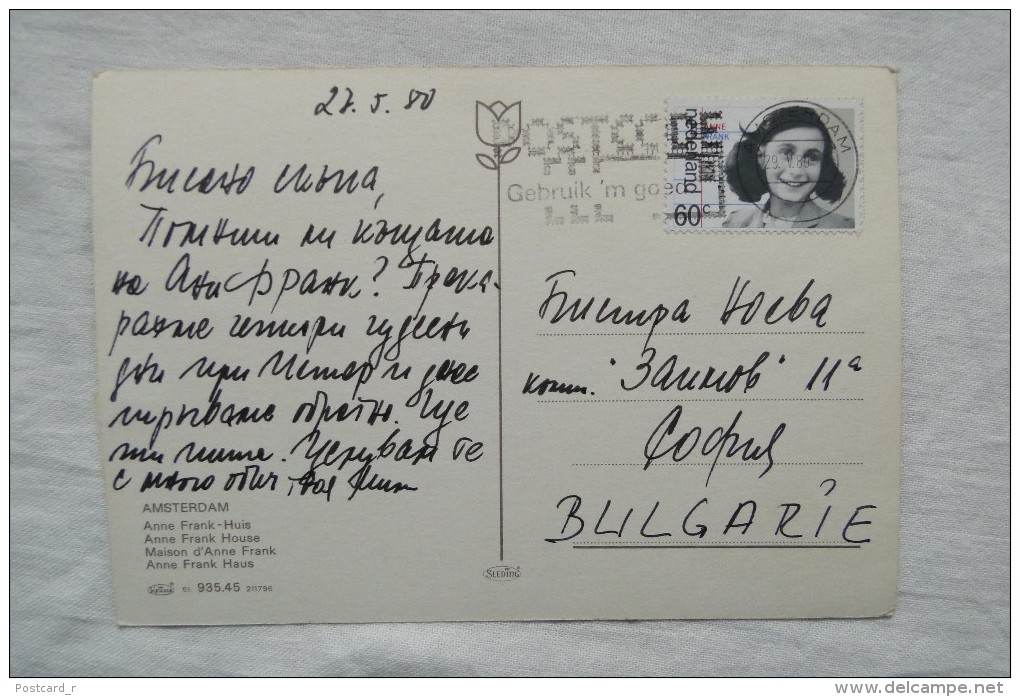 27.5.80
Бисено мила,
Помниш ли къщата
на Ани Франк? Прека-
рахме четири чудесни
дни при Петер и днес
тръгваме обратно. Ще
ти пиша. Целувам те
с много обич, твоя
AMSTERDAM
Anne Frank-Huis
Anne Frank House
Maison d'Anne Frank
Anne Frank Haus
61. 935.45 211796
SLEDING
Gebruik 'm goed
ANNE
FRANK
nederland
60 c
AMSTERDAM
29.V.80
Бистра Ноева
компл. "Заимов" 11а
София
BULGARIE
Postcard_r
www.delcampe.net